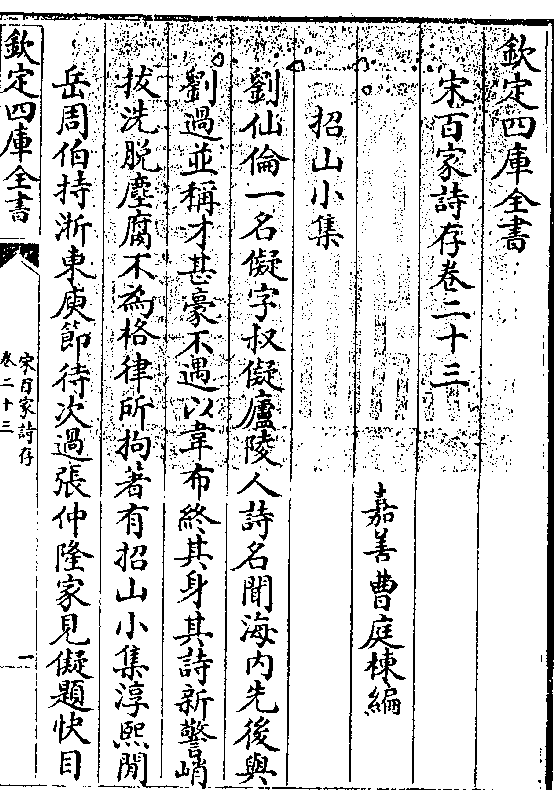 欽定四庫全書
宋百家詩存卷二十三
嘉善曹庭棟編
招山小集
劉仙倫一名儗字叔儗廬陵人詩名聞海内先後與
劉過並稱才甚豪不遇以韋布終其身其詩新警峭
拔洗脱塵腐不為格律所拘著有招山小集淳熙閒
岳周伯持浙東庾節待次過張仲隆家見儗題快目
欽定四庫全書
宋百家詩存
卷二十三
一